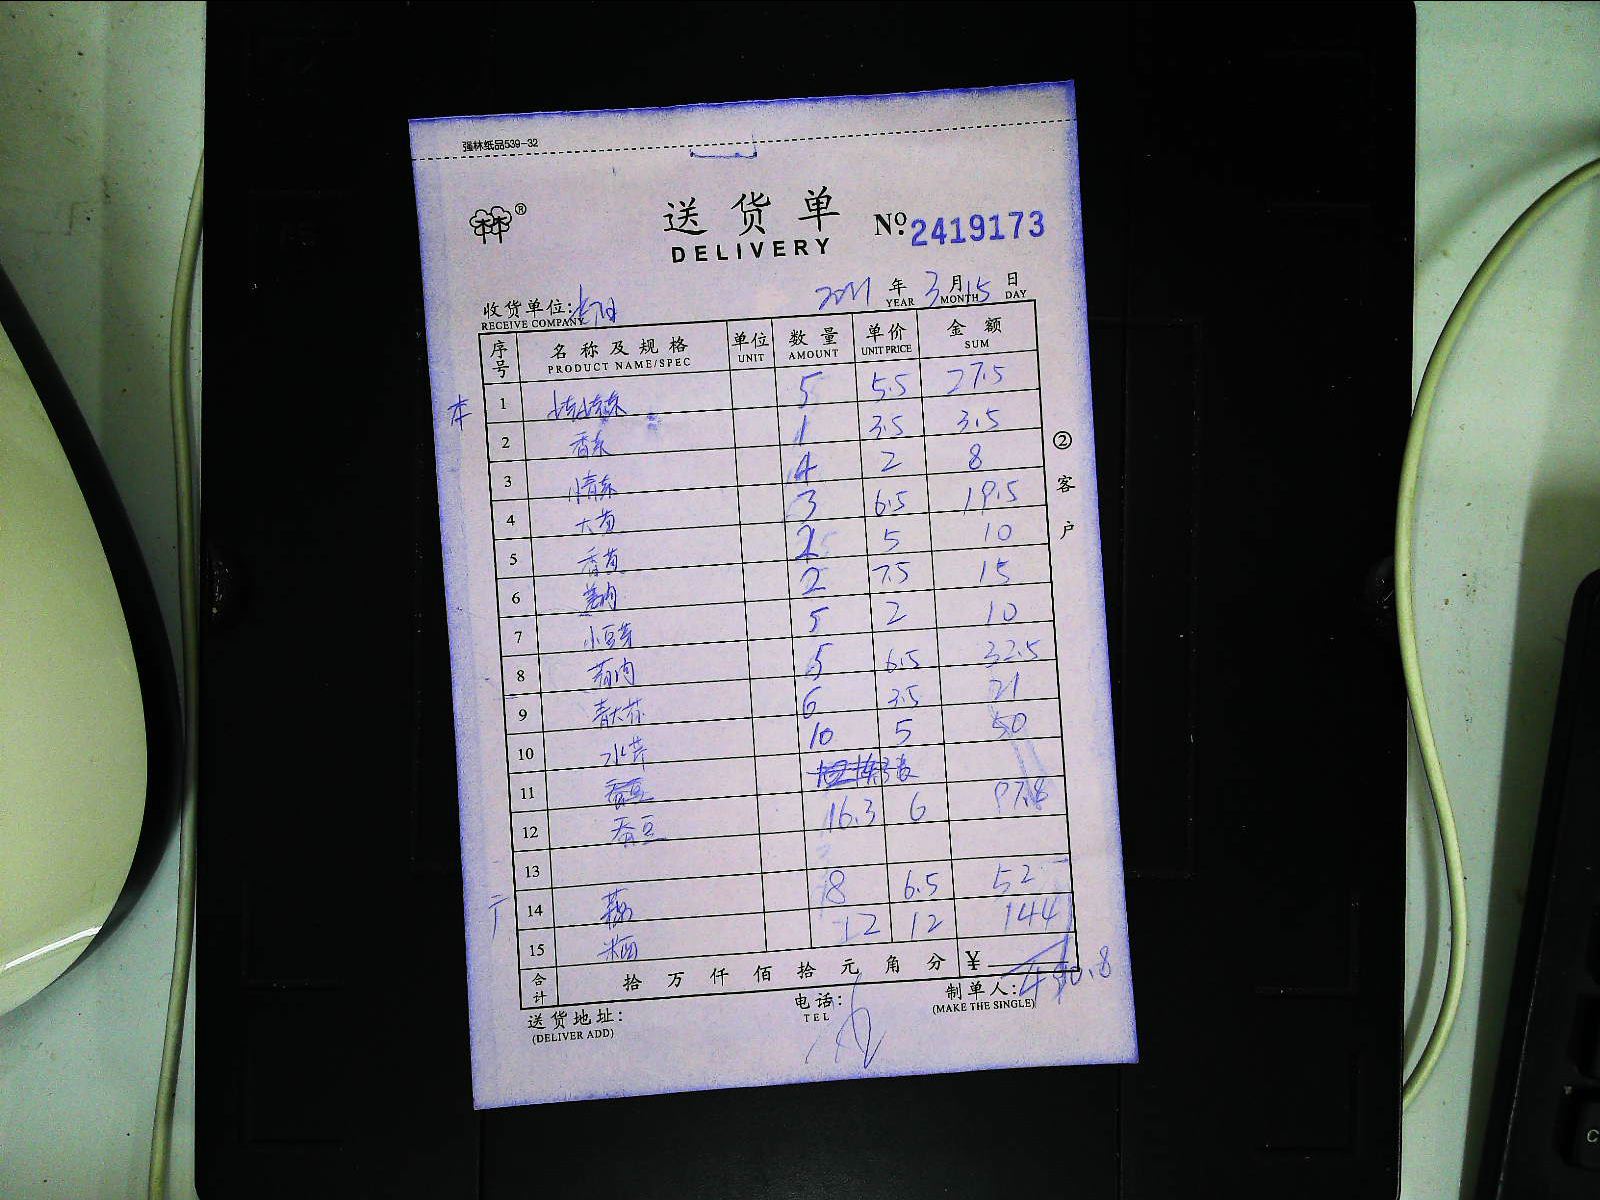 强林纸品539-32
®
送货单
DELIVERY
No. 2419173
2011 年 3 月 15 日
YEAR MONTH DAY
收货单位:
RECEIVE COMPANY
序号 名称及规格 单位 数量 单价 金额
PRODUCT NAME/SPEC UNIT AMOUNT UNIT PRICE SUM
本
1 5 5.5 27.5
2 香东 1 3.5 3.5
3 4 2 8
4 大黄 3 6.5 19.5
5 香黄 2 5 10
6 2 7.5 15
7 小豆芽 5 2 10
8 5 6.5 32.5
9 6 3.5 21
10 水芹 10 5 50
11
12 蚕豆 16.3 6 97.8
13
14 8 6.5 52
15 12 12 144
合计 拾 万 仟 佰 拾 元 角 分 ¥
490.8
② 客户
送货地址:
(DELIVER ADD)
电话:
TEL
制单人:
(MAKE THE SINGLE)